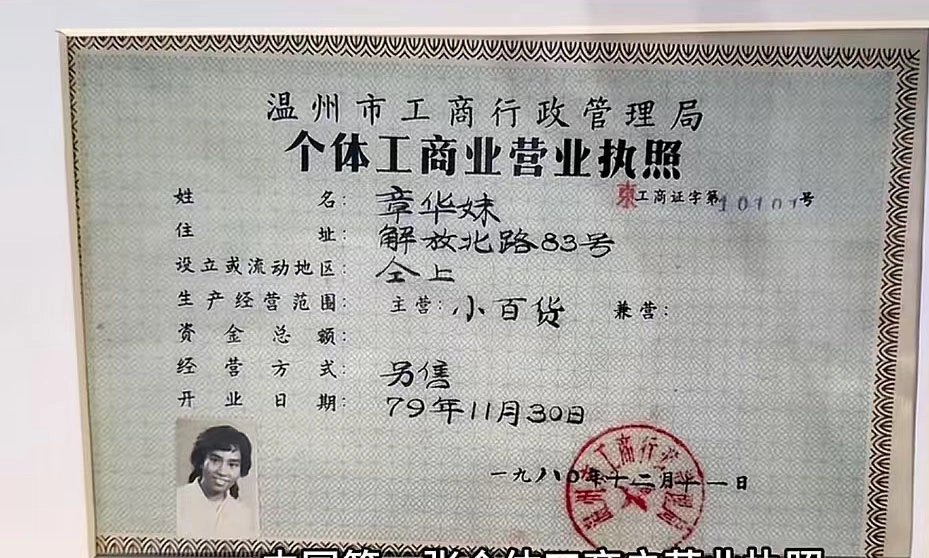 温州市工商行政管理局
个体工商业营业执照
东工商证字第10101号
姓名：章华妹
住址：解放北路83号
设立或流动地区：仝上
生产经营范围：主营：小百货 兼营：
资金总额：
经营方式：另售
开业日期：79年11月30日
一九八〇年十二月十一日